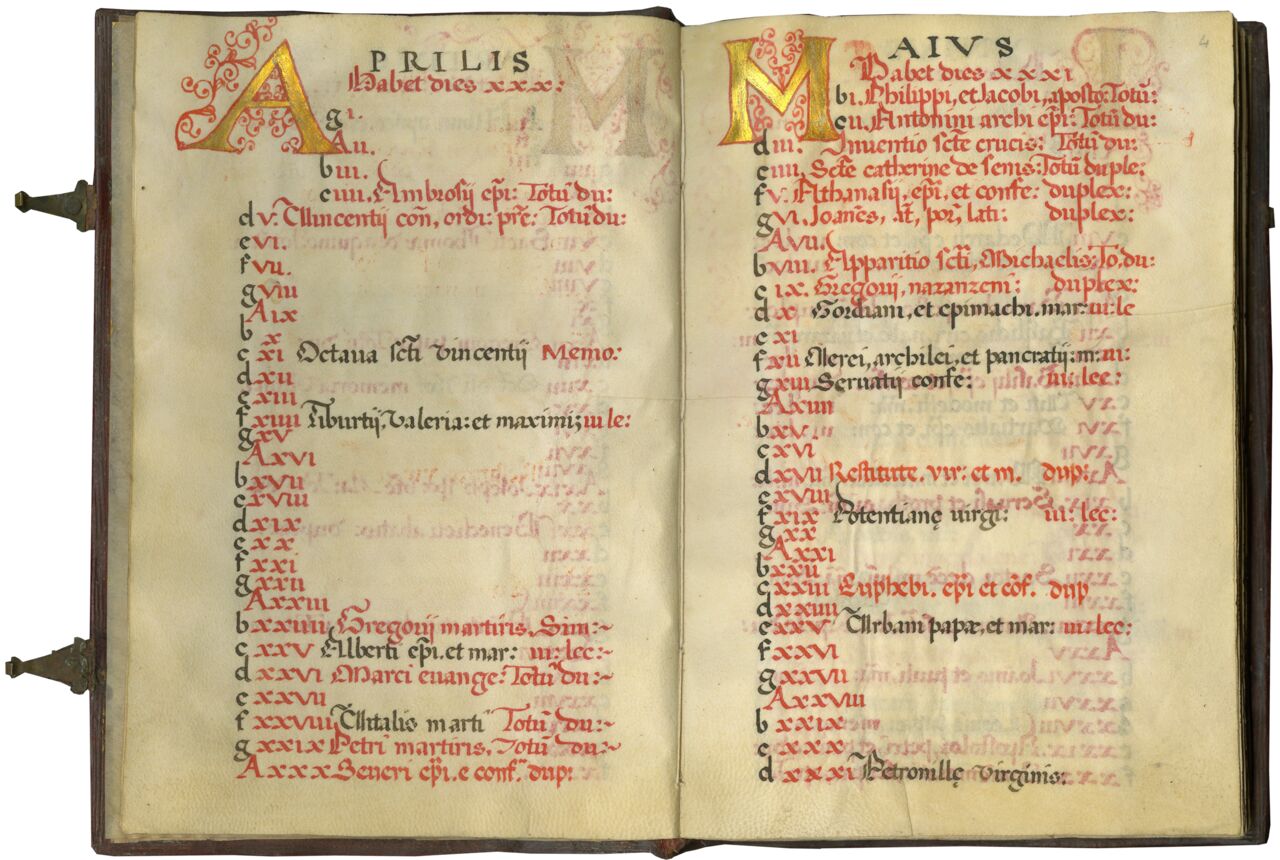 APRILIS
Habet dies xxx:
g i.
A ii.
b iii.
c iiii. Ambrosij ep̄i: Totū du:
d v. Vincentij con, ordi: pr̄e: Totū du:
e vi.
f vii.
g viii
A ix
b x
c xi Octaua sc̄ti vincentij Memo:
d xii
e xiii
f xiiii Tiburtij, Valeria: et maximi: iii le:
g xv
A xvi
b xvii
c xviii
d xix
e xx
f xxi
g xxii
A xxiii
b xxiiii Gregorij martiris, Sim:~
c xxv Alberti ep̄i. et mar: iii: lec:~
d xxvi Marci euange: Totū du:~
e xxvii
f xxviii Vitalis marti Totū du:~
g xxix Petri martiris, Totū du:~
A xxx Seueri ep̄i. e conf. dup:
MAIVS
4
Habet dies xxxi
b i. Philippi, et Jacobi, aposto: Totū:
c ii. Antonini archi ep̄i: Totū du:
d iii. Inuentio sc̄te crucis: Totū du:
e iiii. Sc̄te catherine de senis: Totū duple:
f v. Athanasij, ep̄i, et confe: duplex:
g vi. Joanēs, āt, por̄, lati: duplex:
A vii.
b viii. Apparitio sc̄ti, Michaelis: To. du:
c ix. Gregorij, nazanzeni: duplex:
d x Gordiani, et epimachi. mar: iii: le
e xi
f xii Nerei, archilei, et pancratij: m: iii:
g xiii Seruatij confe: iii: lec:
A xiiii
b xv
c xvi
d xvii Restitute. vir: et m. dup:
e xviii
f xix Potentianę uirgi: iii: lec:
g xx
A xxi
b xxii
c xxiii Euphebi. ep̄i et cōf. dup
d xxiiii
e xxv Vrbani papæ, et mar: iii: lec:
f xxvi
g xxvii
A xxviii
b xxix
c xxx
d xxxi Petronillę Virginis: